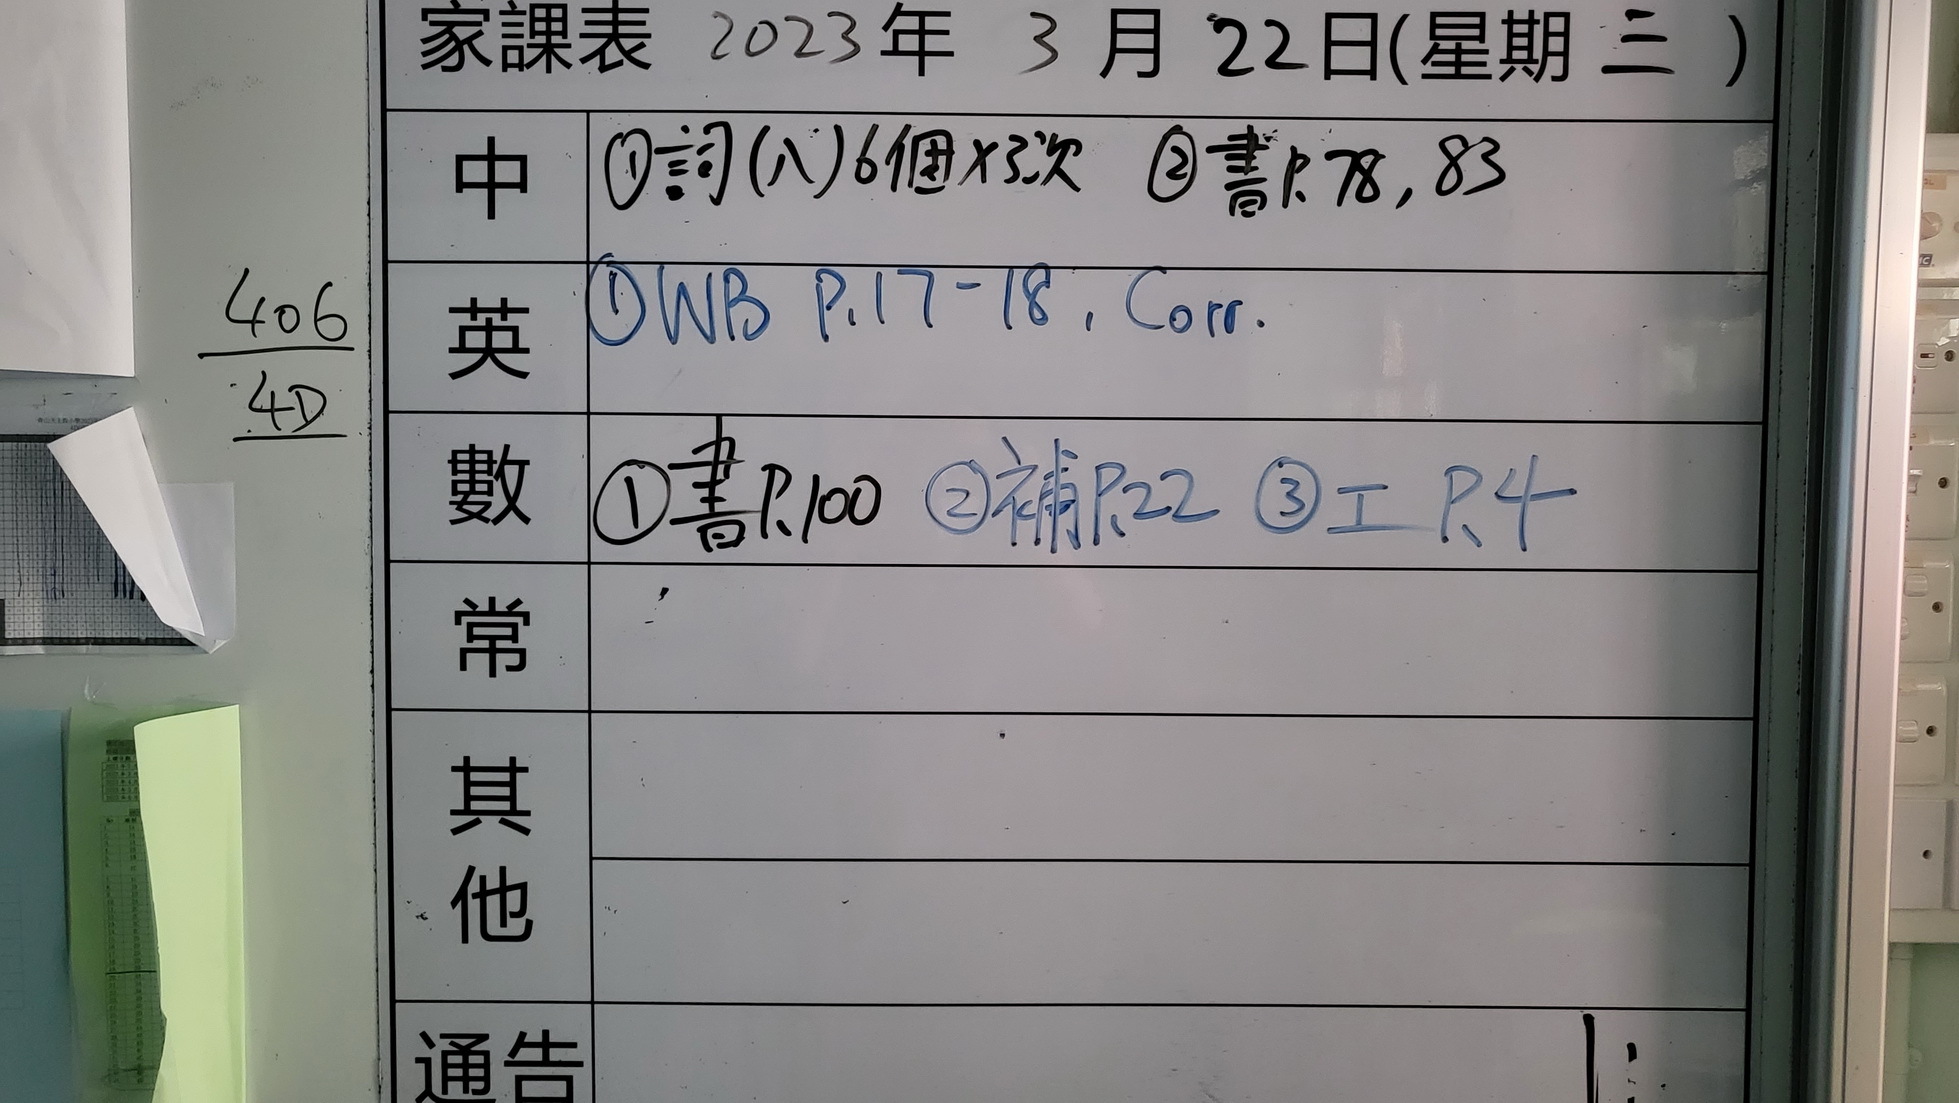 家課表 2023年 3月 22日(星期三)
中 ①詞(八)6個×3次 ②書P.78, 83
英 ①WB P.17-18, Corr.
406
4D
數 ①書P.100 ②補P.22 ③工 P.4
常
其他
通告